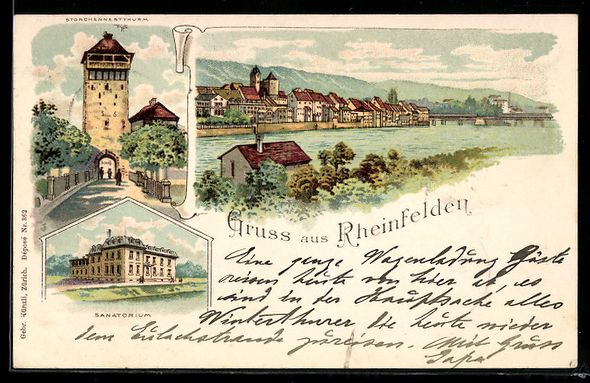 STORCHENNESTTHURM
Gruss aus Rheinfelden
Eine ganze Wagenladung Gäste
reisen heute von hier ab, es
sind in der Hauptsache alles
Winterthurer die heute wieder
dem Eulachstrande zureisen. Mit Gruss
Papa
SANATORIUM
Gebr. Künzli, Zürich. Déposé Nr. 362